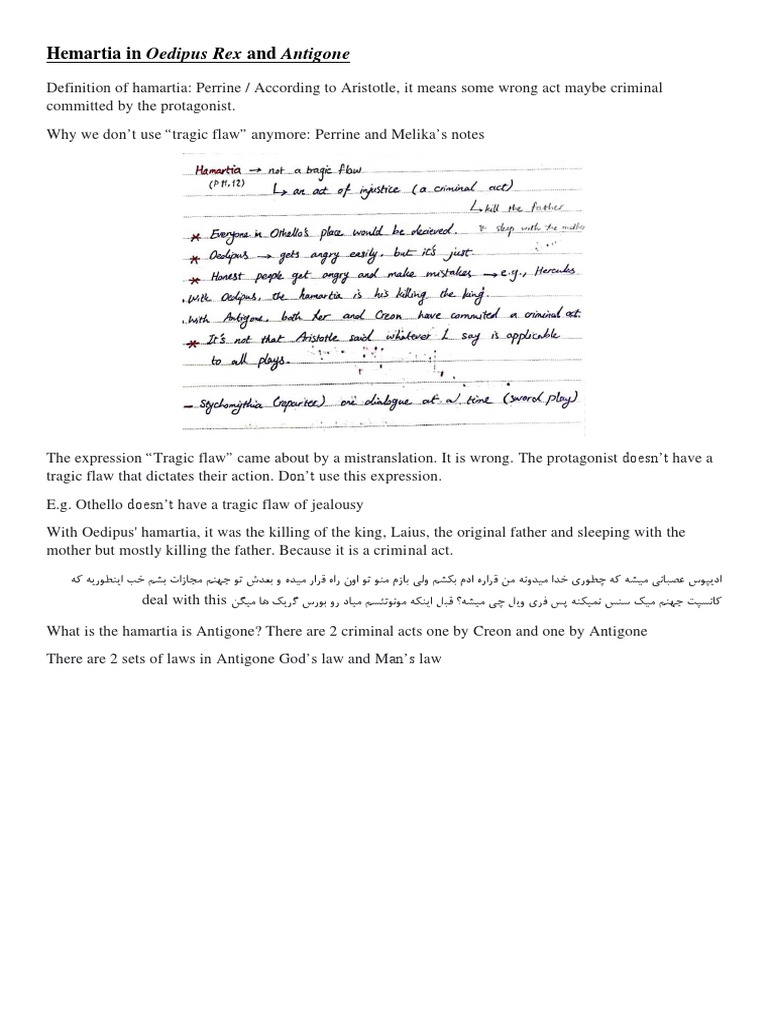 Hemartia in Oedipus Rex and Antigone
Definition of hamartia: Perrine / According to Aristotle, it means some wrong act maybe criminal
committed by the protagonist.
Why we don’t use “tragic flaw” anymore: Perrine and Melika’s notes
Hamartia → not a tragic flaw
(P 11,12) ↳ an act of injustice (a criminal act)
↳ kill the father
* Everyone in Othello's place would be decieved. & sleep with the mother
* Oedipus → gets angry easily, but it's just.
* Honest people get angry and make mistakes → e.g., Hercules
. with Oedipus, the hamartia is his killing the king.
. with Antigone, both her and Creon have commited a criminal act.
* It's not that Aristotle said whatever I say is applicable
to all plays.
- Stychomythia (repartee) one dialogue at a time (sword play)
The expression “Tragic flaw” came about by a mistranslation. It is wrong. The protagonist doesn’t have a
tragic flaw that dictates their action. Don’t use this expression.
E.g. Othello doesn’t have a tragic flaw of jealousy
With Oedipus' hamartia, it was the killing of the king, Laius, the original father and sleeping with the
mother but mostly killing the father. Because it is a criminal act.
ادیپوس عصبانی میشه که چطوری خدا میدونه من قراره ادم بکشم ولی بازم منو تو اون راه قرار میده و بعدش تو جهنم مجازات بشم خب اینطوریه که
کانسپت جهنم میک سنس نمیکنه پس فری ویل چی میشه؟ قبل اینکه مونوتئسم میاد رو بورس گریک ها میگن deal with this
What is the hamartia is Antigone? There are 2 criminal acts one by Creon and one by Antigone
There are 2 sets of laws in Antigone God’s law and Man’s law